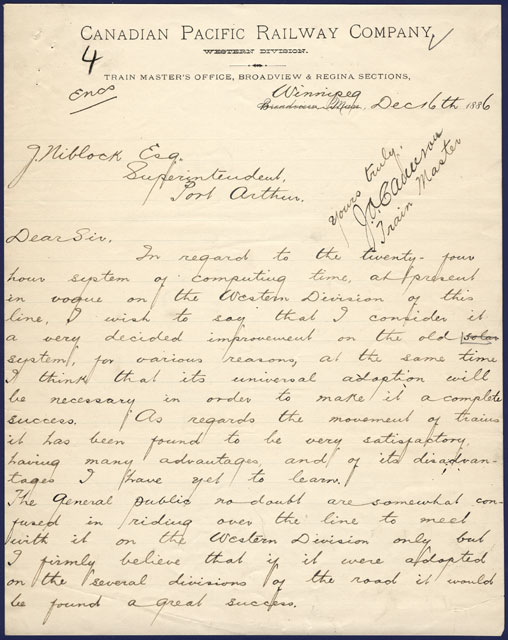 CANADIAN PACIFIC RAILWAY COMPANY,
WESTERN DIVISION.
4
TRAIN MASTER'S OFFICE, BROADVIEW & REGINA SECTIONS,
Encs
Winnipeg
Broadview Man, Dec 16th 1886
J. Niblock Esq.
Superintendent,
Port Arthur.
Yours truly,
J.A. Cameron
Train Master
Dear Sir.
In regard to the twenty-four
hour system of computing time, at present
in vogue on the Western Division of this
line, I wish to say that I consider it
a very decided improvement on the old solar
system, for various reasons, at the same time
I think that its universal adoption will
be necessary in order to make it a complete
success. As regards the movement of trains
it has been found to be very satisfactory.
having many advantages, and of its disadvan-
tages I have yet to learn.
The General public no doubt are somewhat con-
fused in riding over the line to meet
with it on the Western Division only but
I firmly believe that if it were adopted
on the several divisions of the road it would
be found a great success.